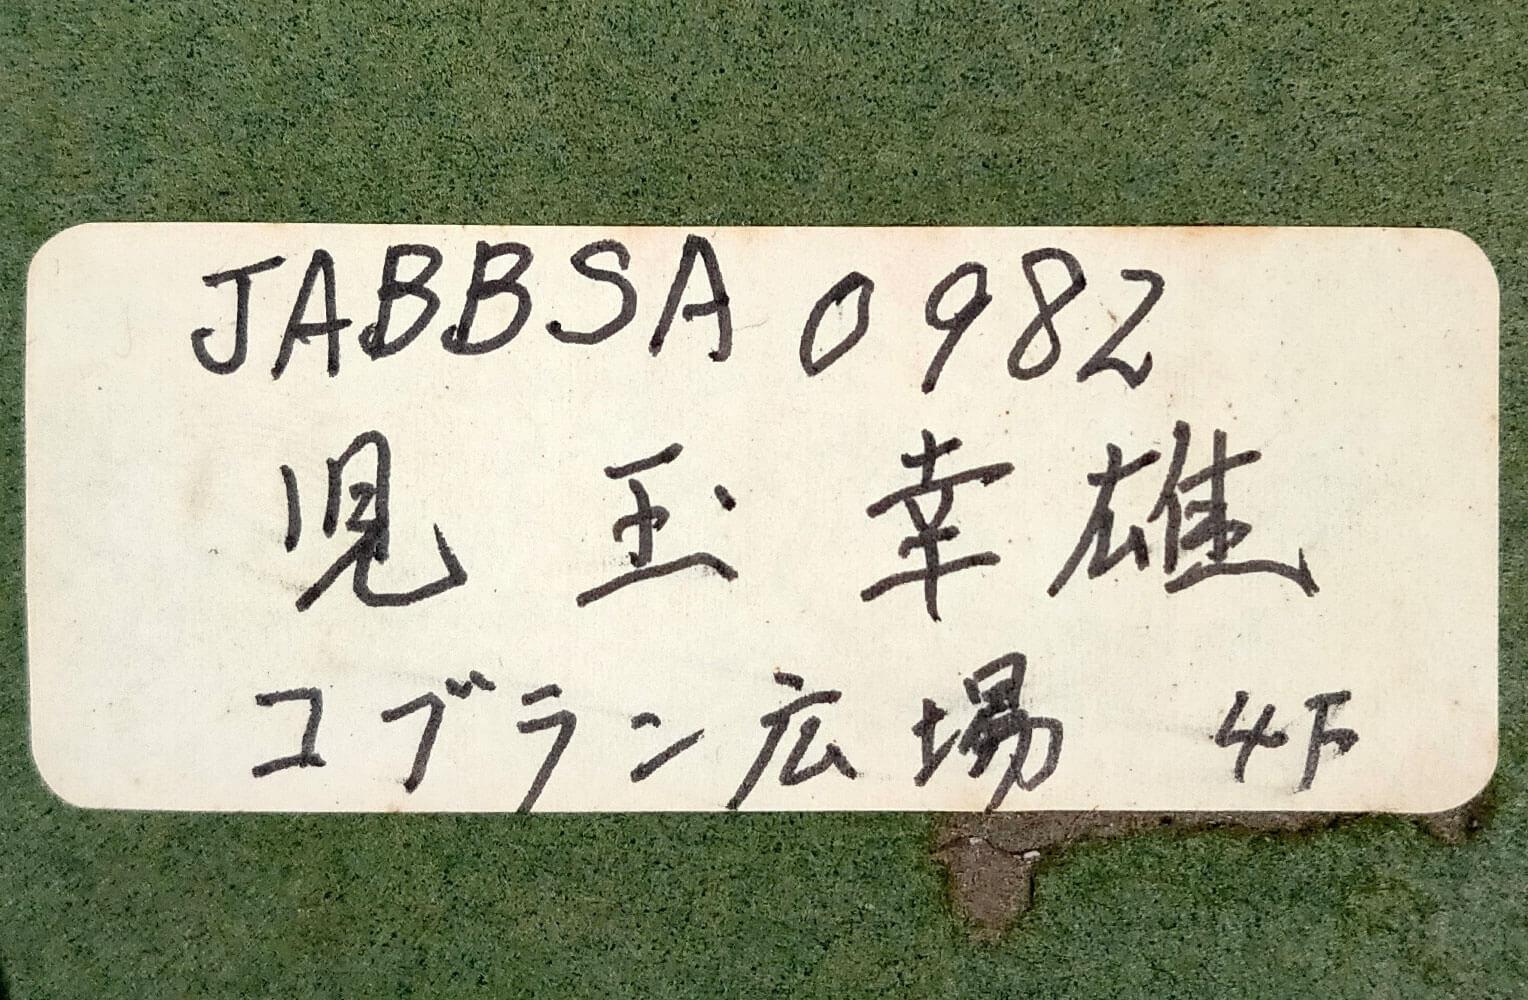 JABBSA 0982
児玉幸雄
コブラン広場 4F